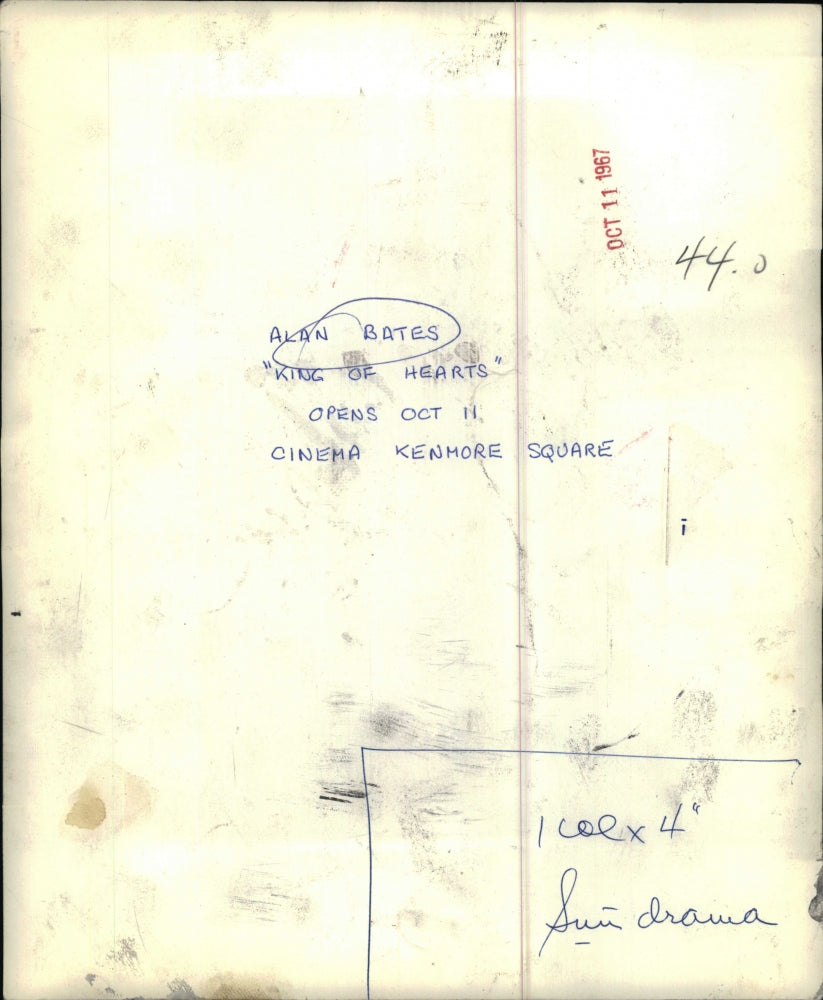 OCT 11 1967
44.0
ALAN BATES
"KING OF HEARTS"
OPENS OCT 11
CINEMA KENMORE SQUARE
i
1 col x 4"
Sun drama